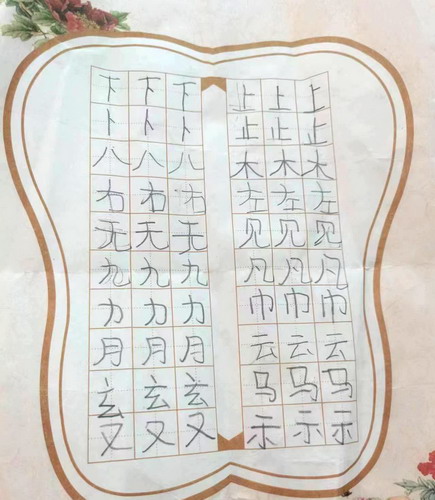 下下下 上上上
卜卜卜 止止止
八八八 木木木
右右右 左左左
无无无 见见见
九九九 凡凡凡
力力力 巾巾巾
月月月 云云云
玄玄玄 马马马
又又又 示示示